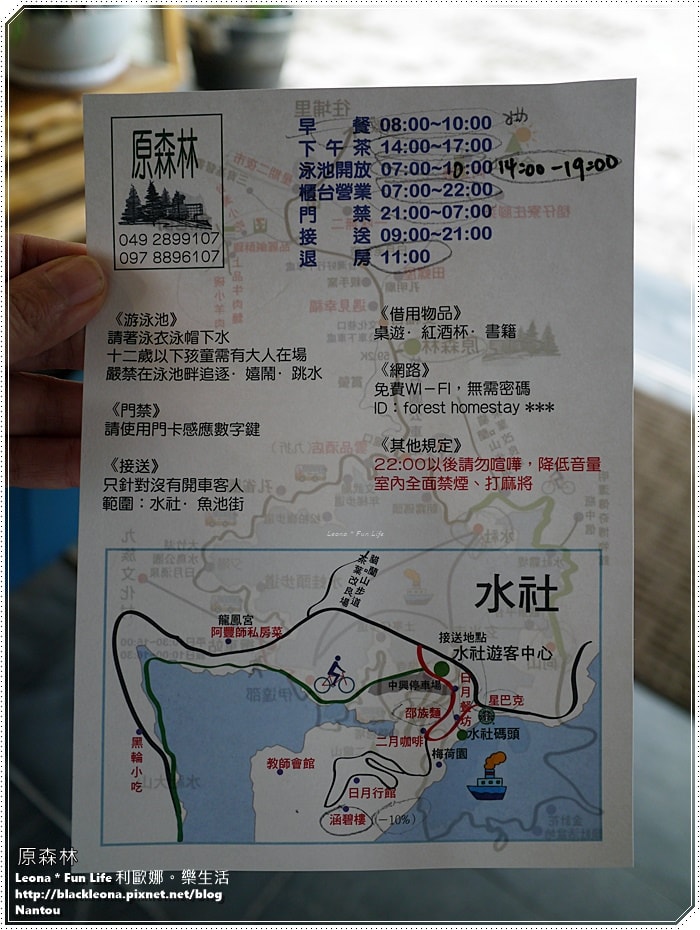 原森林
049 2899107
097 8896107
早餐 08:00~10:00
下午茶 14:00~17:00
泳池開放 07:00~10:00 14:00-19:00
櫃台營業 07:00~22:00
門禁 21:00~07:00
接送 09:00~21:00
退房 11:00
《游泳池》
請著泳衣泳帽下水
十二歲以下孩童需有大人在場
嚴禁在泳池畔追逐·嬉鬧·跳水
《門禁》
請使用門卡感應數字鍵
《接送》
只針對沒有開車客人
範圍：水社·魚池街
《借用物品》
桌遊·紅酒杯·書籍
《網路》
免費WI－FI，無需密碼
ID：forest homestay ***
《其他規定》
22:00以後請勿喧嘩，降低音量
室內全面禁煙、打麻將
Leona * Fun Life
水社
貓囒山步道
茶葉改良場
龍鳳宮
阿豐師私房菜
接送地點
水社遊客中心
中興停車場
日月餐坊
星巴克
邵族麵
水社碼頭
三月咖啡
梅荷園
黑輪小吃
教師會館
日月行館
涵碧樓 (-10%)
原森林
Leona * Fun Life 利歐娜。樂生活
http://blackleona.pixnet.net/blog
Nantou